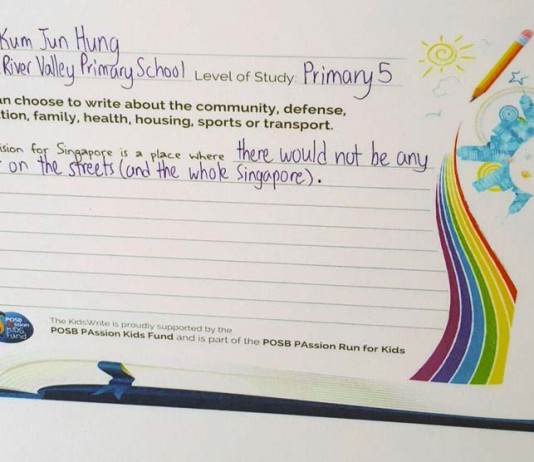 Kum Jun Hung
River Valley Primary School Level of Study: Primary 5
an choose to write about the community, defense,
tion, family, health, housing, sports or transport.
ision for Singapore is a place where there would not be any
on the streets (and the whole Singapore).
POSB
PAssion
Kids
Fund
The KidsWrite is proudly supported by the
POSB PAssion Kids Fund and is part of the POSB PAssion Run for Kids